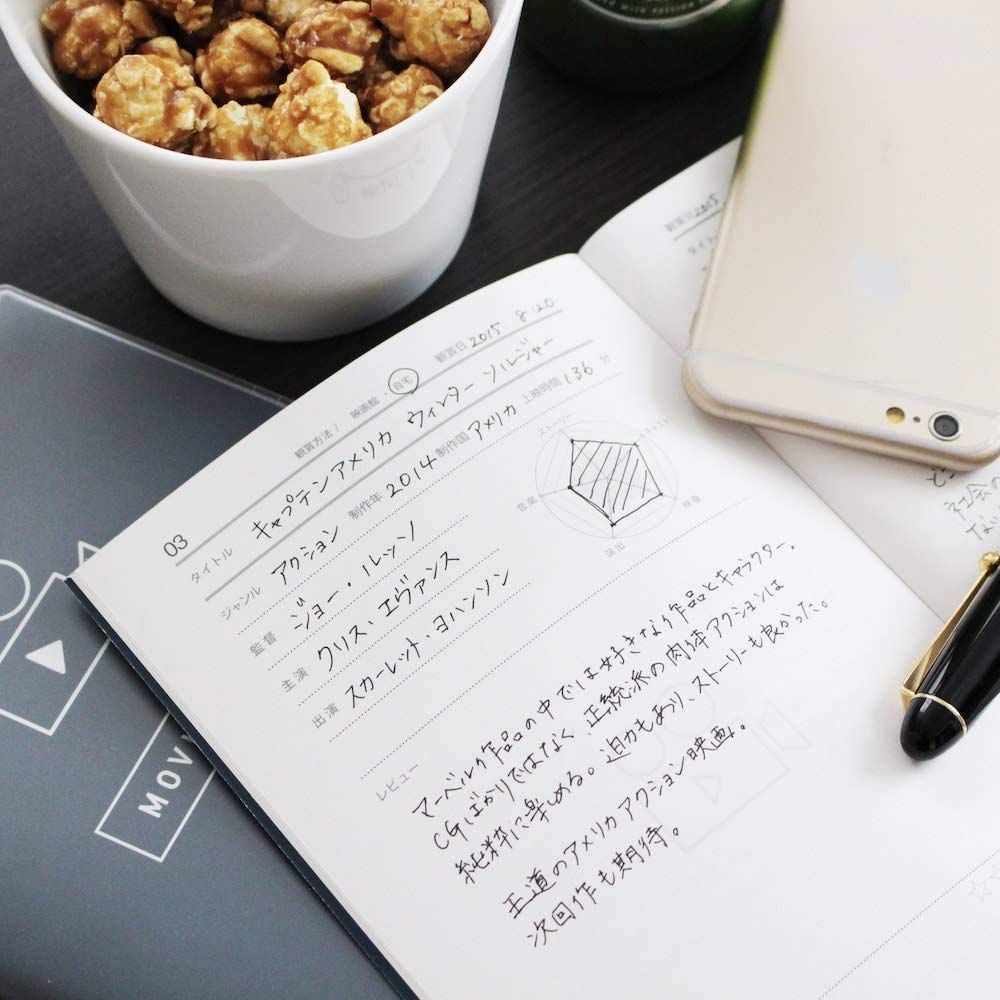 観賞日 2015 8.20
観賞方法 / 映画館・自宅
03
タイトル キャプテンアメリカ ウィンター ソルジャー
ジャンル アクション 制作年 2014 制作国 アメリカ 上映時間 136 分
監督 ジョー・ルッソ
主演 クリス・エヴァンス
出演 スカーレット・ヨハンソン
ストーリー
キャスト
音楽
映像
演出
レビュー
マーベル作品の中では好きな作品とキャラクター。
CGばかりではなく、正統派の肉体アクションは
純粋に楽しめる。迫力もあり、ストーリーも良かった。
王道のアメリカアクション映画。
次回作も期待。
観賞日 2015
タイト
社会の
ない
MOV